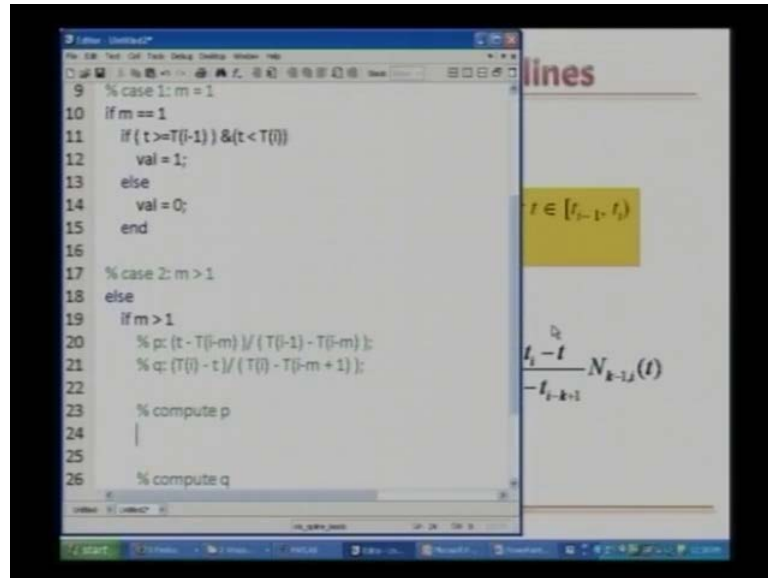 Editor - Untitled2*
File Edit Text Cell Tools Debug Desktop Window Help
9 % case 1: m = 1
10 if m == 1
11 if ( t >=T(i-1) ) &(t < T(i))
12 val = 1;
13 else
14 val = 0;
15 end
16
17 % case 2: m > 1
18 else
19 if m > 1
20 % p: (t - T(i-m) )/ ( T(i-1) - T(i-m) );
21 % q: (T(i) - t )/ ( T(i) - T(i-m + 1) );
22
23 % compute p
24
25
26 % compute q
lines
t ∈ [t_{i-1}, t_i)
t_i - t
- t_{i-k+1}
N_{k-1,i}(t)
start